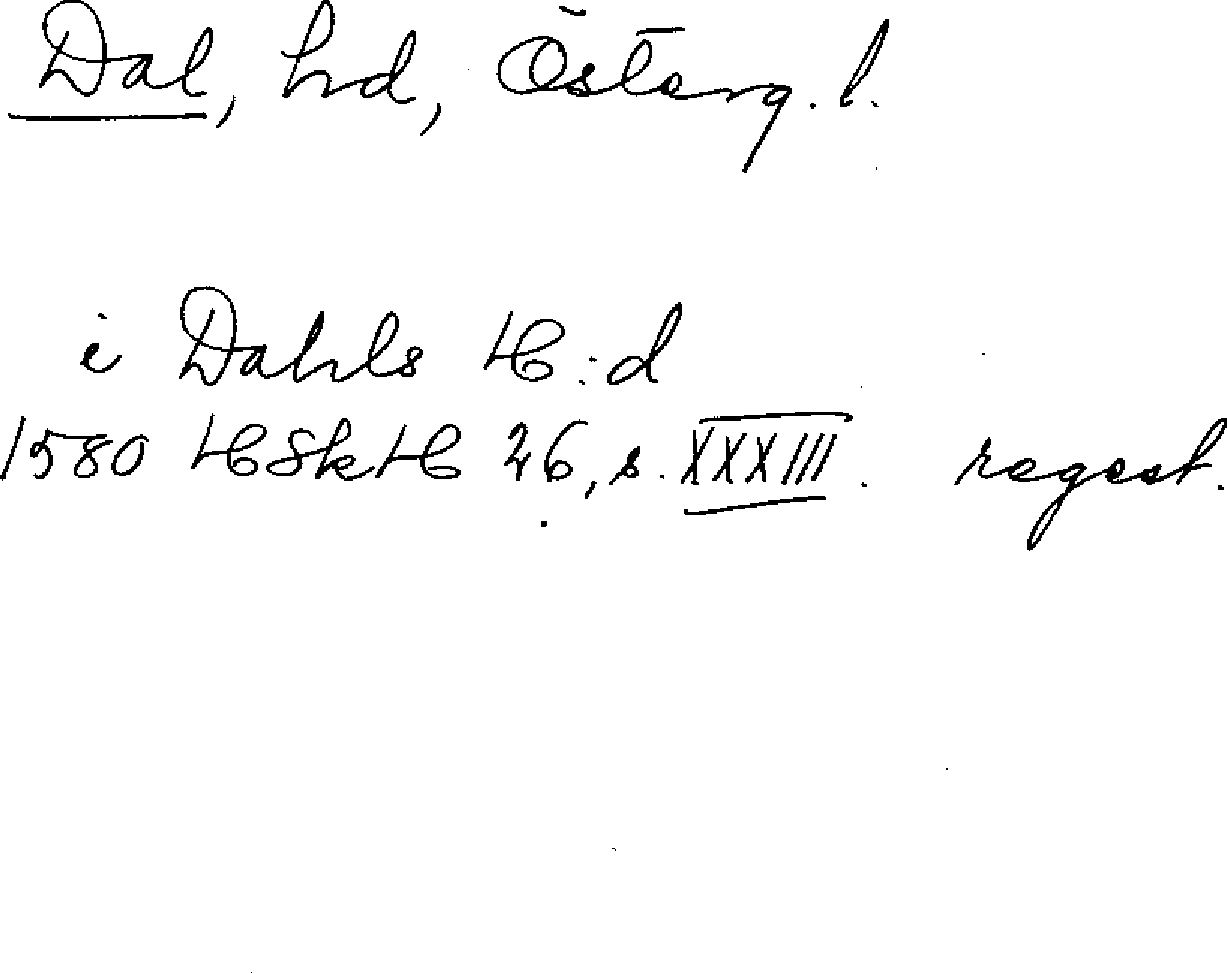 Dal, hd, Österg. l.
i Dahls H:d
1580 HSkH 26, s. XXXIII. regest.